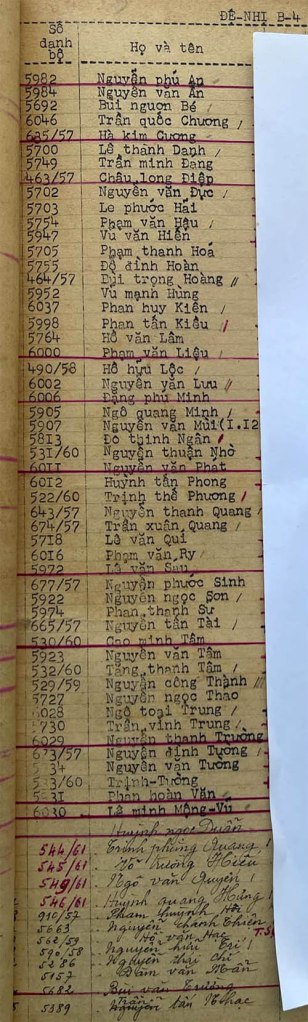 ĐỆ-NHỊ B-4
Số danh bộ
Họ và tên
5982 Nguyễn phú An
5984 Nguyễn văn Ân
5692 Bùi nguơn Bé /
6046 Trần quốc Chương /
635/57 Hà kim Cương
5700 Lê thành Danh /
5749 Trần minh Đang
463/57 Châu long Điệp
5702 Nguyễn văn Đực /
5703 Lê phước Hải
5754 Phạm văn Hậu /
5947 Vũ văn Hiển
5705 Phạm thanh Hoá
5755 Đỗ đình Hoàn
464/57 Bùi trọng Hoàng //
5952 Vũ mạnh Hùng
6037 Phan huy Kiên /
5998 Phan tấn Kiều /
5764 Hồ văn Lâm
6000 Phạm văn Liệu /
490/58 Hồ hữu Lộc /
6002 Nguyễn văn Lưu //
6006 Đặng phú Minh
5905 Ngô quang Minh /
5907 Nguyễn văn Mùi(1.12
5813 Đỗ thịnh Ngân /
531/60 Nguyễn thuận Nhờ
6011 Nguyễn văn Phát
6012 Huỳnh tấn Phong
522/60 Trịnh thế Phương /
643/57 Nguyễn thanh Quang /
674/57 Trần xuân Quang /
5718 Lê văn Qui
6016 Phạm văn Ry /
5972 Lê văn Sau
677/57 Nguyễn phước Sinh
5922 Nguyễn ngọc Sơn /
5974 Phan thanh Sự
665/57 Nguyễn tấn Tài /
530/60 Cao minh Tâm
5923 Nguyễn văn Tâm
532/60 Tăng thanh Tâm /
529/59 Nguyễn công Thành //
5727 Nguyễn ngọc Thao
6028 Ngô toại Trung /
5730 Trần vinh Trung /
6029 Nguyễn thanh Trường
673/57 Nguyễn đình Tường /
Nguyễn văn Tường
533/60 Trịnh-Tường
Phan hoàn Văn
6030 Lê minh Mộng-Vũ
Huỳnh ngọc Duẩn
544/61 Trịnh phùng Quang /
545/61 Võ Hiếu
549/61 Ngô văn Quyền
546/61 Huỳnh quang Hưng /
910/57 Phạm huỳnh
5663 Nguyễn thành Thiên
562/59 Hồ văn Hạc
590/58 Nguyễn hữu Trí /
5286 Nguyễn thái Chí
5157 văn Mẫn
5682 Bùi văn Trường
5389 Nguyễn tấn Nhạc